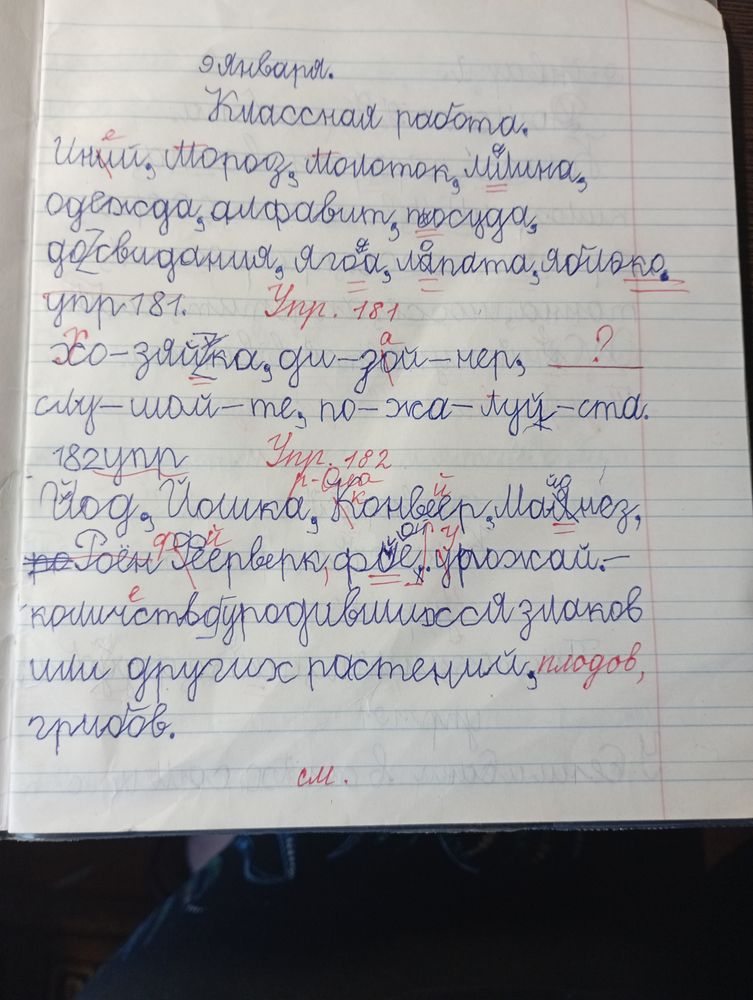 9 января.
Классная работа.
Иней, Мороз, Молоток, малина,
одежда, алфавит, посуда,
до свидания, ягода, лопата, яблоко.
упр 181. Упр. 181
Хо-зяйка, ди-зай-нер, ?
слу-шай-те, по-жа-луй-ста.
182упр Упр. 182
Йод, Йошка, Конвейер, Майонез,
Роён Феерверк, фойе. урожай.-
количество уродившихся злаков
или других растений, плодов,
грибов.
см.